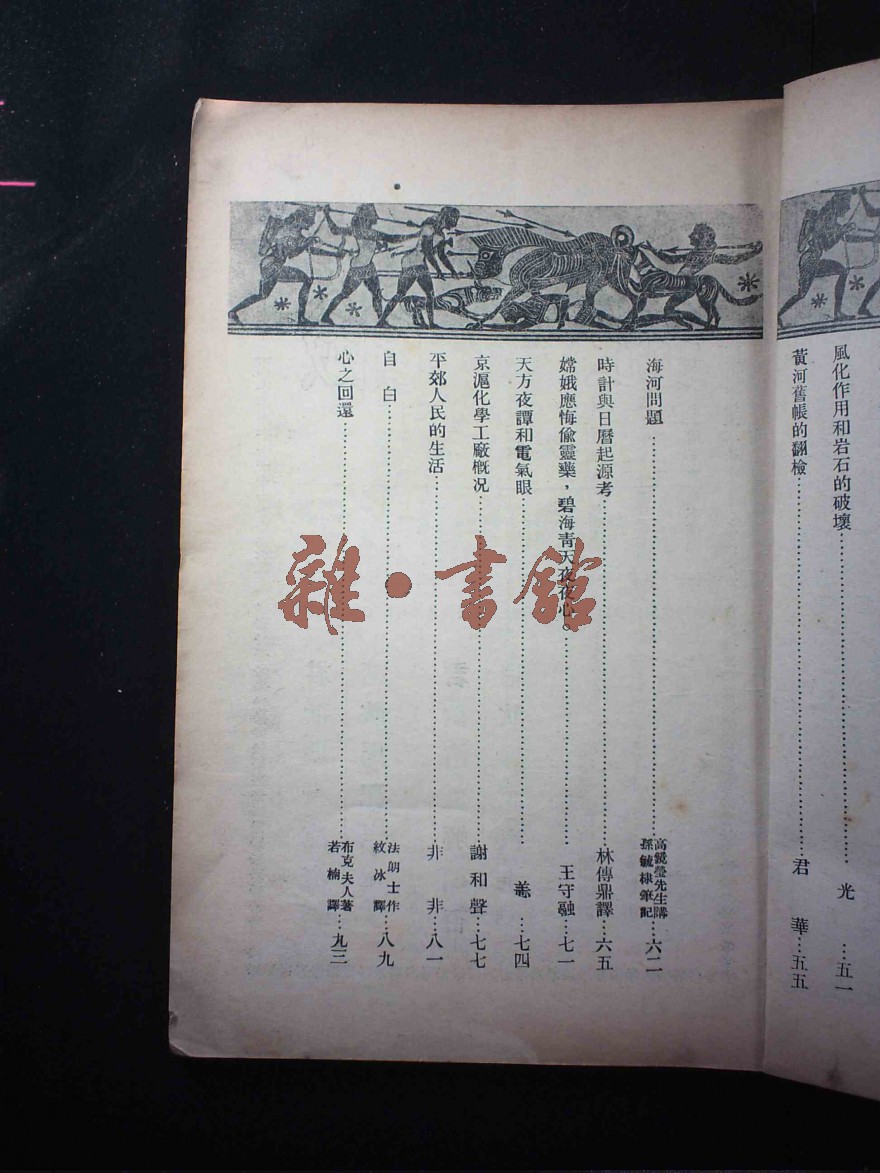 風化作用和岩石的破壞……光…五一
黃河舊帳的翻檢……君 華…五五
海河問題……高鏡瑩先生講 孫毓棣筆記…六二
時計與日曆起源考……林傳鼎譯…六五
嫦娥應悔偸靈藥,碧海靑天夜夜心。……王守融…七一
天方夜譚和電氣眼……七四
京滬化學工廠槪况……謝和聲…七七
平郊人民的生活……非 非…八一
自白……法朗士作 紋冰譯…八九
心之回還……布克夫人著 若楠譯…九三
雜·書館